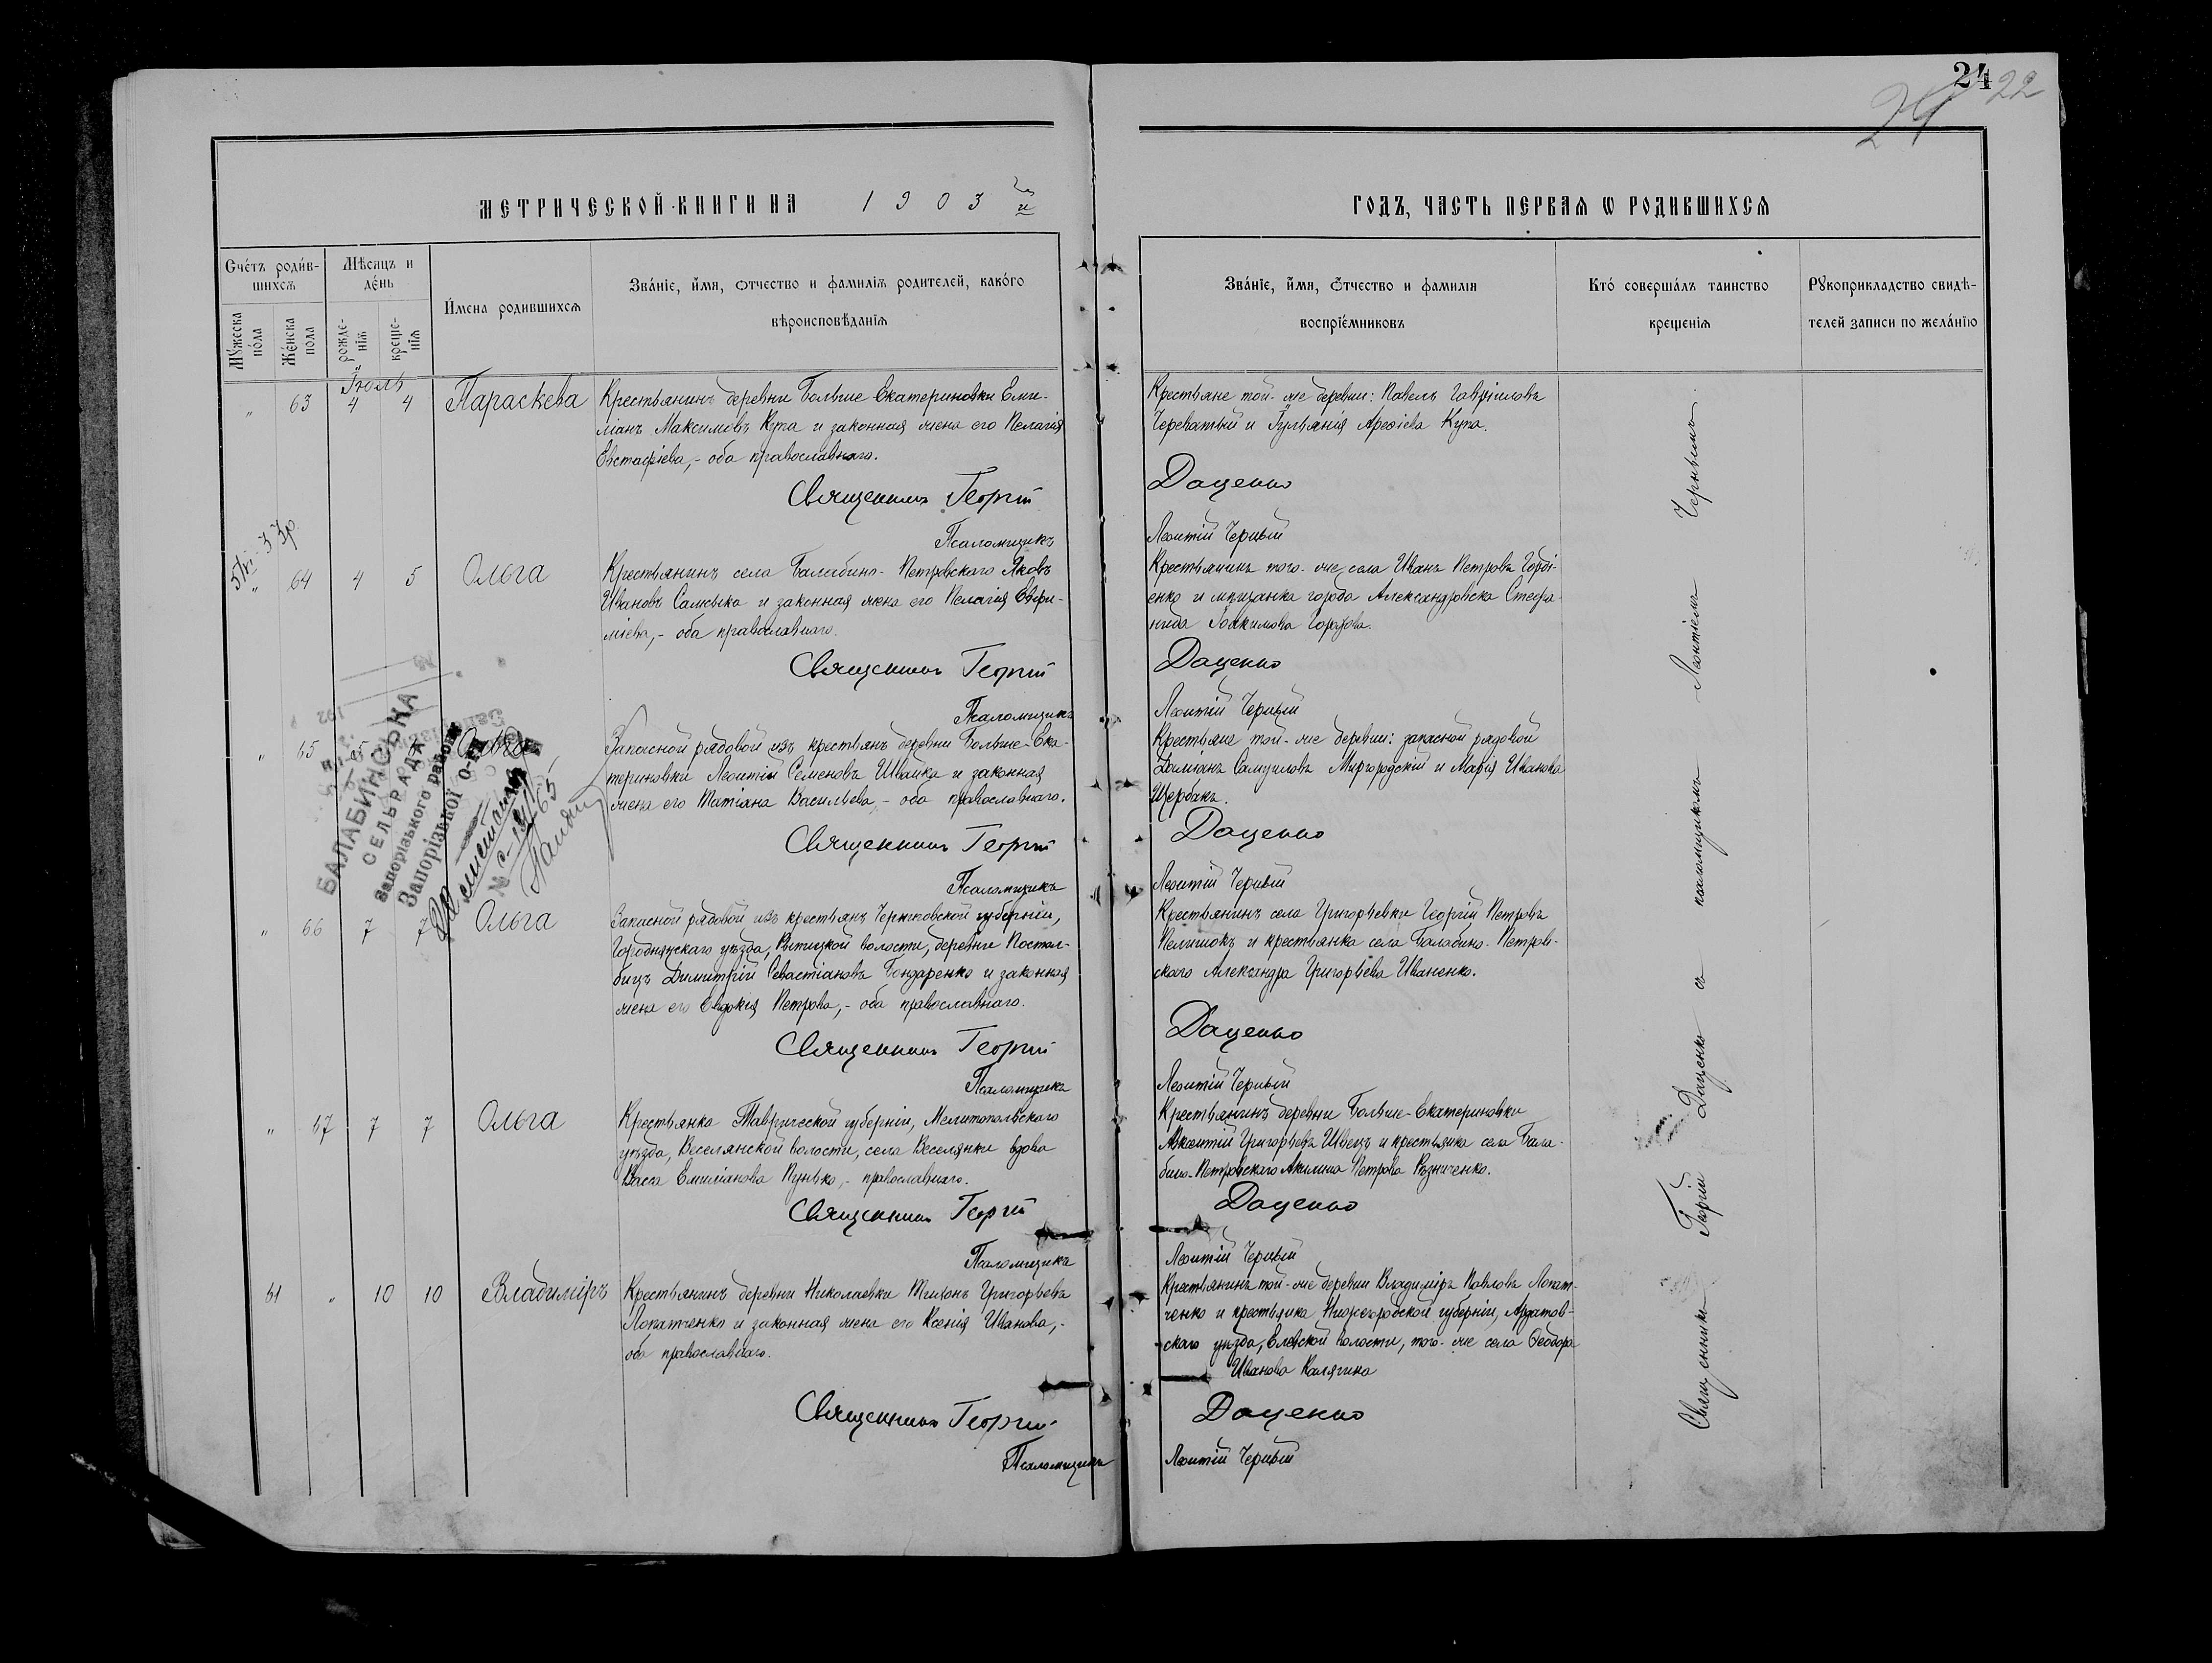 24
24 22
МЕТРИЧЕСКОЙ КНИГИ НА 1903 й
ГОДЪ, ЧАСТЬ ПЕРВАЯ Ѡ РОДИВШИХСЯ
Счетъ родив-
шихся
Мѣсяцъ и
день
Имена родившихся
Званіе, имя, отчество и фамилія родителей, какого
вѣроисповѣданія
Мужеска
пола
Женска
пола
рожде-
нія
креще-
нія
Званіе, имя, отчество и фамилія
воспріемниковъ
Кто совершалъ таинство
крещенія
Рукоприкладство свидѣ-
телей записи по желанію
Іюль
" 63 4 4 Параскева
Крестьянинъ деревни Больше-Екатериновки Еми-
ліанъ Максимовъ Купа и законная жена его Пелагія
Евстафіева, - оба православнаго.
Священникъ Георгій
Псаломщикъ
Крестьяне той-же деревни: Павелъ Гавріиловъ
Череватый и Іуліанія Арефіева Купа.
Даценко
Леонтій Черный
" 64 4 5 Ольга
Крестьянинъ села Балабино-Петровского Яковъ
Ивановъ Самсыка и законная жена его Пелагія Евфи-
міева, - оба православнаго.
Священникъ Георгій
Псаломщикъ
Крестьянинъ того-же села Иванъ Петровъ Горді-
енко и мѣщанка города Александровска Стефа-
нида Іоакимова
Даценко
Леонтій Черный
" 65 5 Ольга
Запасной рядовой изъ крестьянъ деревни Больше-Ека-
териновки Леонтій Семеновъ Швайка и законная
жена его Татіана Васильева, - оба православнаго.
Священникъ Георгій
Псаломщикъ
Крестьяне той-же деревни: запасной рядовой
Даміанъ Самуиловъ Миргородскій и Марія Иванова
Щербакъ.
Даценко
Леонтій Черный
БАЛАБИНСЬКА
СЕЛЬРАДА
Запорізького району
Запорізької О-ТИ
" 66 7 7 Ольга
Запасной рядовой изъ крестьянъ Черниговской губерніи,
Городнянскаго уѣзда, волости, деревни Постол-
бицъ Димитрій Севастіановъ Бондаренко и законная
жена его Евдокія Петрова, - оба православнаго.
Священникъ Георгій
Псаломщикъ
Крестьянинъ села Григорьевки Георгій Петровъ
Пелишокъ и крестьянка села Балабино-Петров-
ского Александра Григорьева Иваненко.
Даценко
Леонтій Черный
" 67 7 7 Ольга
Крестьянка Таврической губерніи, Мелитопольскаго
уѣзда, Веселянской волости, села Веселянки вдова
Васса Емиліанова Пунько, - православнаго.
Священникъ Георгій
Псаломщикъ
Крестьянинъ деревни Больше-Екатериновки
Авксентій Григорьевъ Швецъ и крестьянка села Бала-
бино-Петровскаго Акилина Петрова Рѣзниченко.
Даценко
Леонтій Черный
61 " 10 10 Владиміръ
Крестьянинъ деревни Николаевки Тихонъ Григорьевъ
Лопатченко и законная жена его Ксенія Иванова, -
оба православнаго.
Священникъ Георгій
Псаломщикъ
Крестьянинъ той-же деревни Владиміръ Павловъ Лопат-
ченко и крестьянка Нижегородской губерніи, Ардатов-
скаго уѣзда, волости, того-же села Ѳеодора
Иванова Калягина
Даценко
Леонтій Черный
Священникъ Георгій Даценко съ псаломщикомъ Леонтіемъ Чернымъ